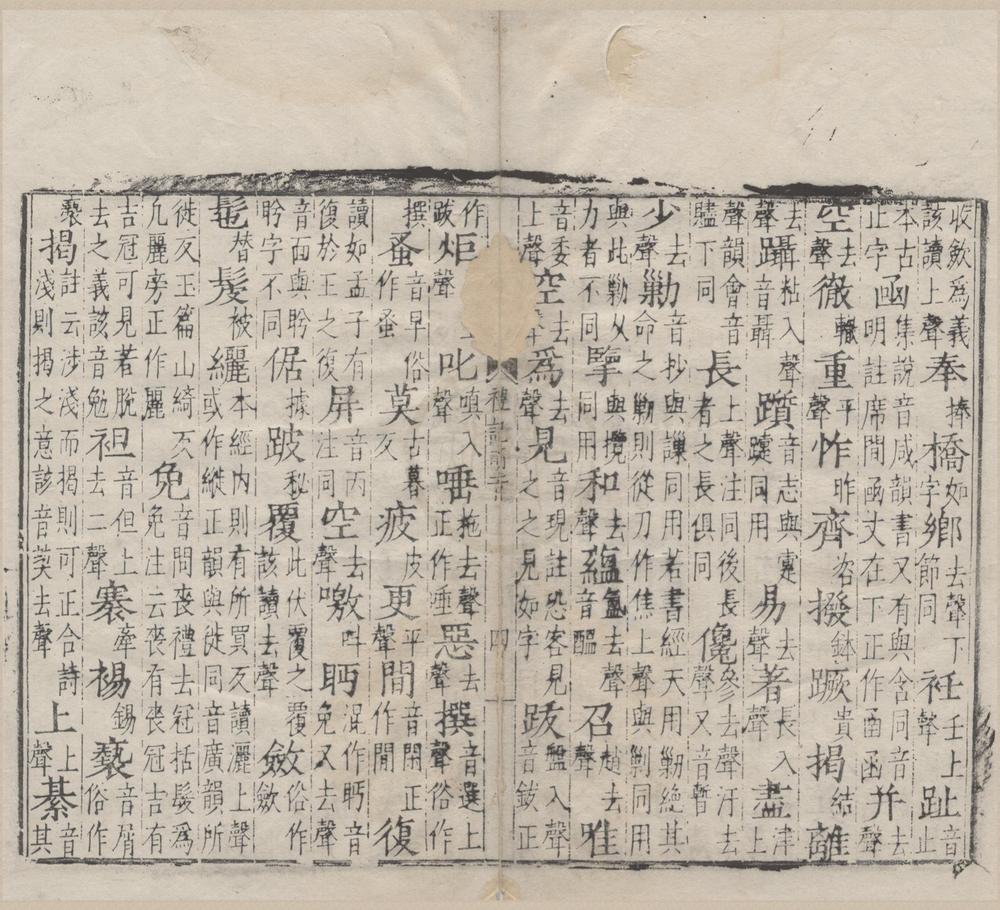 收歛爲義該讀上聲奉捧橋如字鄉去聲下節同衽壬上聲趾音止
本古正字函集說音咸韻書又有與含同音明註席間函丈在下正作圅函并去聲
空去聲徹轍重平聲怍昨齊咨撥鉢蹶貴揭結離
去聲躡粘入聲音聶躓音志與疐躓同用易去聲著長入聲盡津上
聲韻會音贐下同長上聲注同後長者之長俱同儳參去聲汙去聲又音暫
少去聲勦音抄與謙同用若書經天用勦絕其命之勦則從刀作焦上聲與剿同用
與此勦从力者不同擥與攬同用和去聲蘊氳去聲音醞召趙去聲唯
音委上聲空去聲爲去聲見音現註恐客見之之見如字跋盤入聲音鈸正
禮記
四
作跋炬聲叱嗔入聲唾拖去聲正作唾惡去聲撰音選上聲俗作
撰蚤音早俗作蚤莫古暮又疲皮更平聲間音閑正作閒復
讀如孟子有復於王之復屏音丙注同空去聲噭叫眄混作眄音免又去聲
音面與盻盻字不同倨據跛秘覆此伏覆之覆該讀去聲斂俗作歛
髢替髮被纚本經内則有所買反讀灑上聲或作縰正韻與徙同音廣韻所
徙反玉篇山綺反凡麗旁正作麗免音問喪禮去冠括髮爲免注云喪有喪冠吉有
吉冠可見若脫去之義該音勉袒音但上去二聲褰牽裼錫褻音屑俗作
褻揭註云涉淺而揭則可正合詩淺則揭之意該音契去聲上上聲綦音其